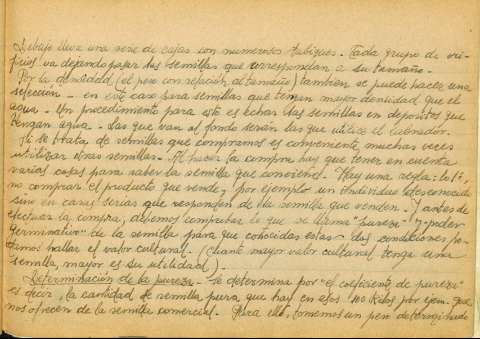 Debajo lleva una serie de cajas con numerosos tabiques. Cada grupo de ori-
ficios va dejando pasar las semillas que correspondan a su tamaño.
Por la densidad (el peso con relación al tamaño) tambien se puede hacer una
selección. - en este caso será semillas que tengan mayor densidad que el
agua. - Un procedimiento para esto es echar las semillas en depositos que
tengan agua. - Las que van al fondo serán las que utilice el labrador.
Si se trata de semillas que compramos es conveniente muchas veces
utilizar otras semillas. - Al hacer la compra hay que tener en cuenta
varias cosas para saber la semilla que conviene. - Hay una regla: lo 1º,
no comprar el producto que vende, por ejemplo un individuo desconocido
sino en casas serias que responden de la semilla que venden. - Y antes de
efectuar la compra, debemos comprobar lo que se llama "pureza" y "poder
germinativo" de la semilla para que conocidas estas dos condiciones po-
damos hallar el valor cultural. (Cuanto mayor valor cultural tenga una
semilla, mayor es su utilidad).
Determinación de la pureza. - Se determina por "el coeficiente de pureza"
es decir, la cantidad de semilla pura que hay en esos 100 kilos por ejem. que
nos ofrecen de la semilla comercial. - Para ello, tomemos un peso determinado